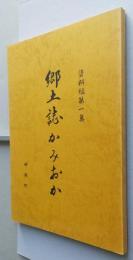 資料編第一集
郷土誌かみおか